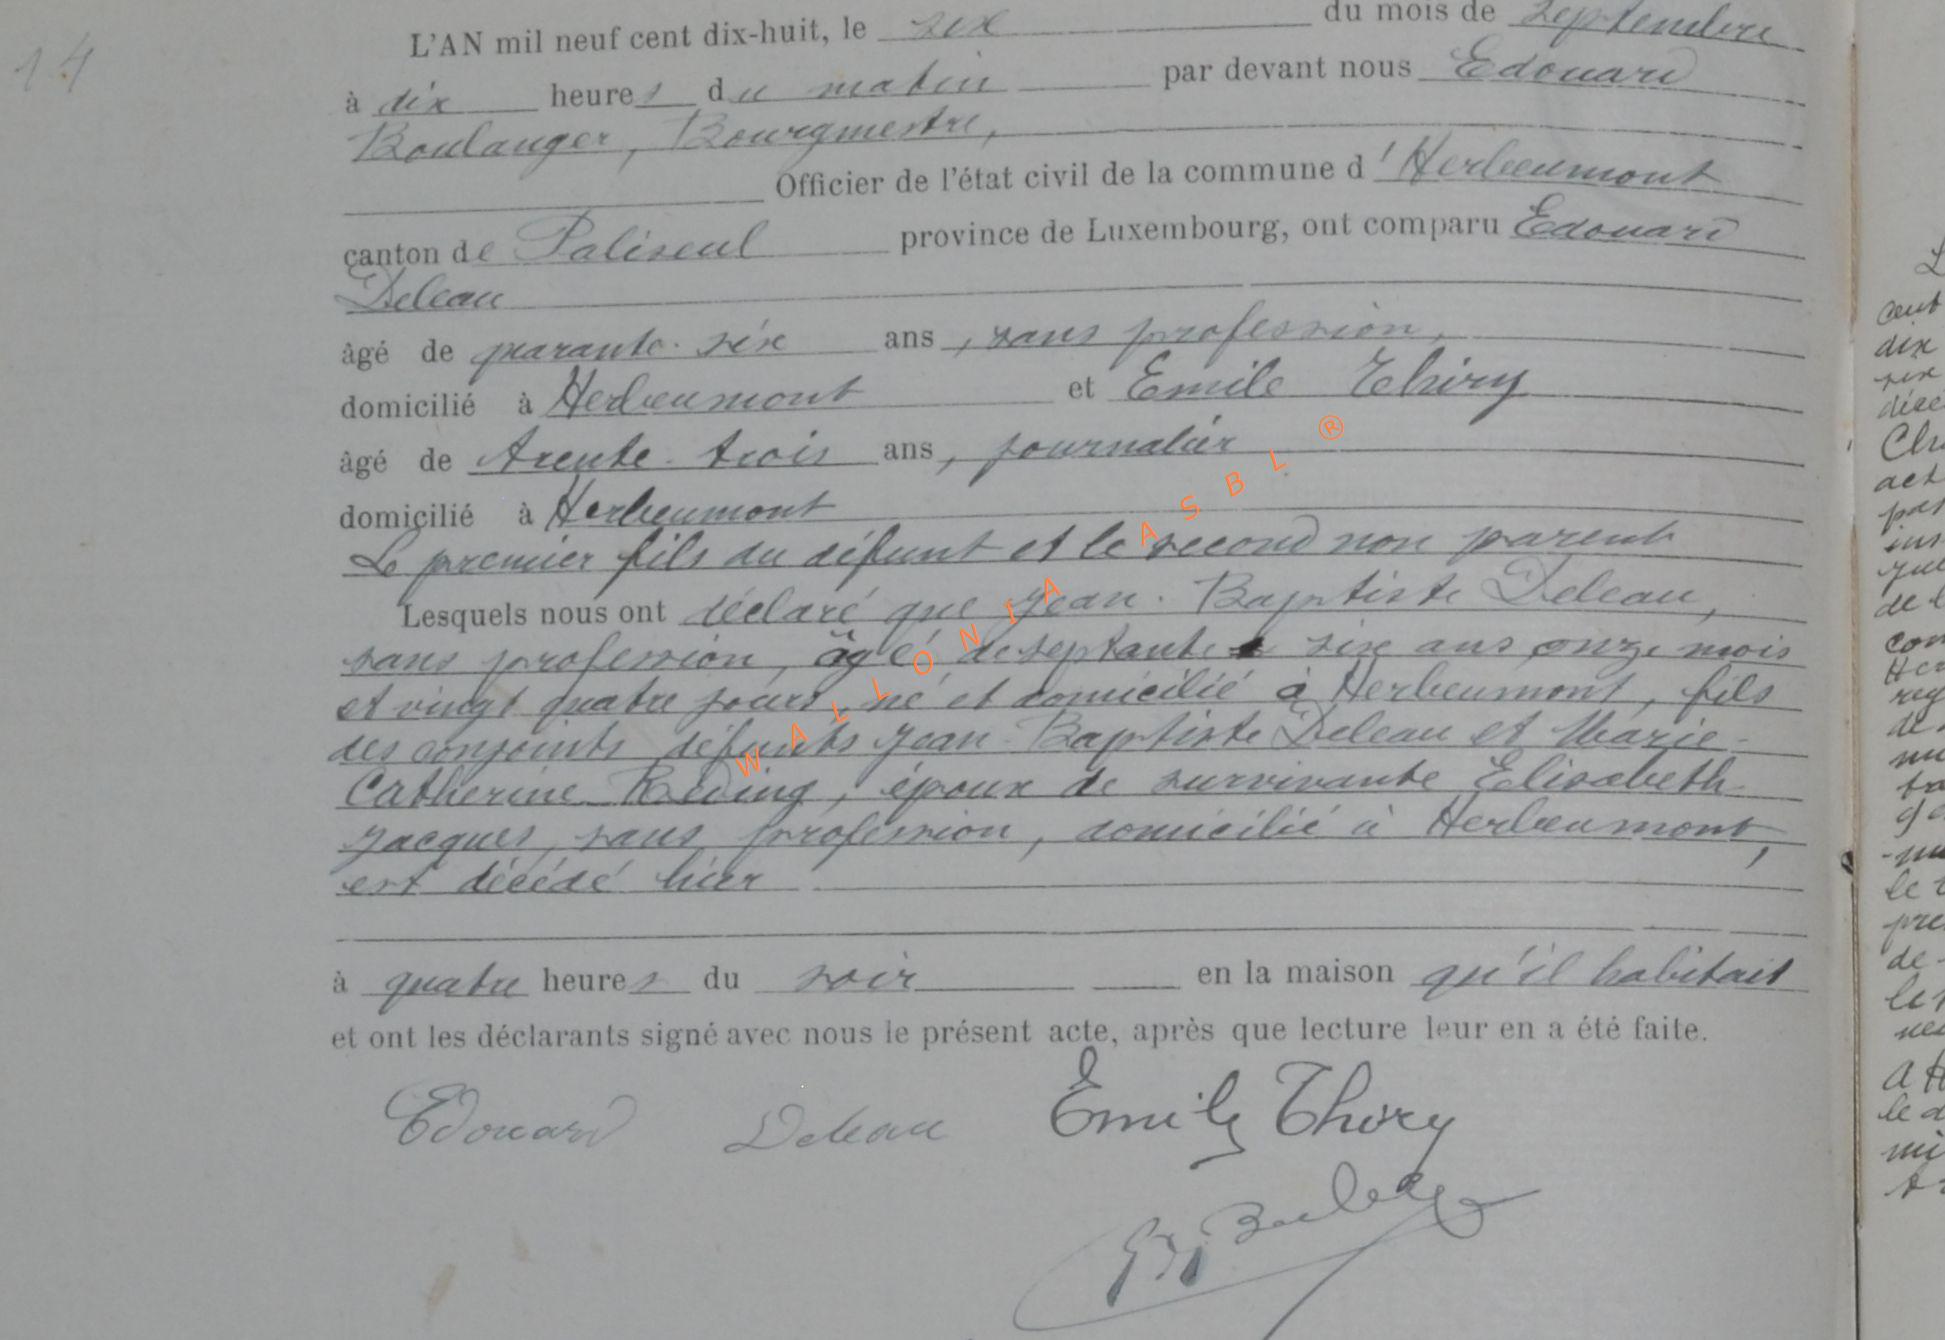 14
L'AN mil neuf cent dix-huit, le six du mois de septembre
à dix heures du matin par devant nous Edouard
Boulanger, Bourgmestre,
Officier de l'état civil de la commune d'Herbeumont
canton de Paliseul province de Luxembourg, ont comparu Edouard
Deleau
âgé de quarante-six ans, sans profession,
domicilié à Herbeumont et Emile Thiry
âgé de trente-trois ans, journalier
domicilié à Herbeumont
Le premier fils du défunt et le second non parent
Lesquels nous ont déclaré que Jean-Baptiste Deleau,
sans profession, âgé de septante six ans onze mois
et vingt quatre jours, né et domicilié à Herbeumont, fils
des conjoints défunts Jean-Baptiste Deleau et Marie-
Catherine Reding, époux de survivante Elisabeth
Jacques, sans profession, domicilié à Herbeumont,
est décédé hier
à quatre heures du soir en la maison qu'il habitait
et ont les déclarants signé avec nous le présent acte, après que lecture leur en a été faite.
Edouard Deleau Emile Thiry
WALLONIA ASBL ®
cent
dix
six
Cli
act
de l
con
Her
reg
de
le
pre
de
le d